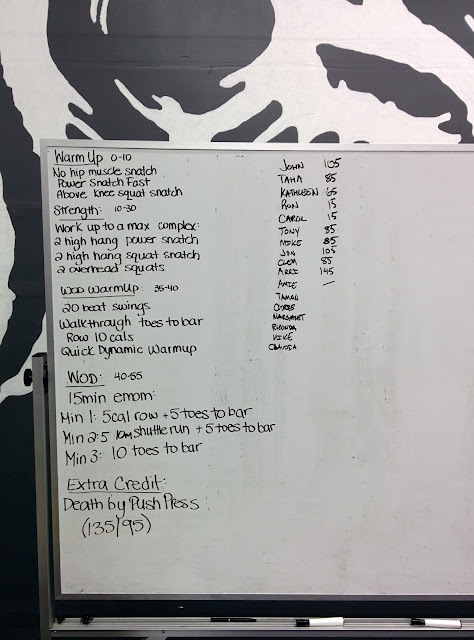 Warm Up 0-10
No hip muscle snatch
Power Snatch Fast
Above knee squat snatch
Strength: 10-30
Work up to a max complex:
2 high hang power snatch
2 high hang squat snatch
2 overhead squats
WOD WarmUp: 35-40
20 beat swings
Walkthrough toes to bar
Row 10 cals
Quick Dynamic Warmup
WOD: 40-55
15min emom:
Min 1: 5cal row + 5 toes to bar
Min 2: 5 10m shuttle run + 5 toes to bar
Min 3: 10 toes to bar
Extra Credit:
Death by Push Press
(135/95)
JOHN 105
TAHA 85
KATHLEEN 65
RON 15
CAROL 15
TONY 85
MIKE 85
JON 105
CLEM 85
ARRI 145
AMIE —
MARGARET
RHONDA
CLAUDIA